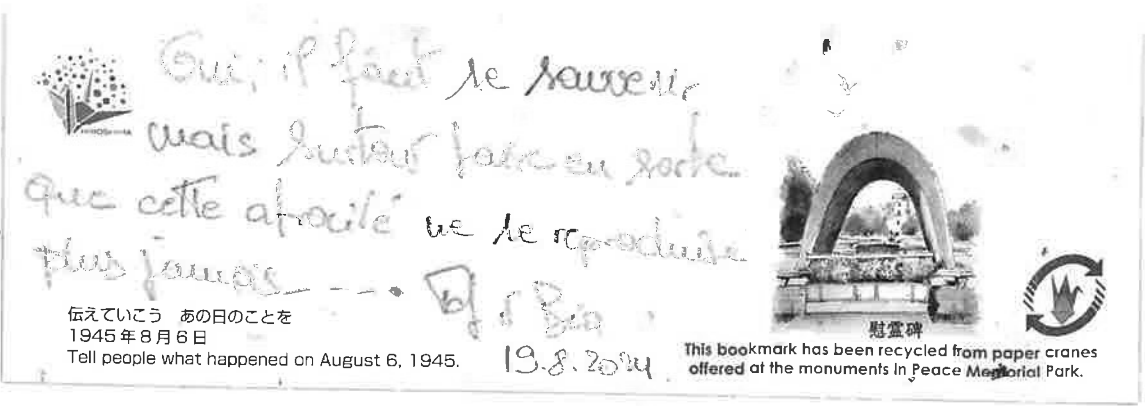 Oui, il faut se souvenir
mais surtout faire en sorte
que cette atrocité ne se reproduise
plus jamais
19.8.2024
HIROSHIMA
伝えていこう あの日のことを
1945年8月6日
Tell people what happened on August 6, 1945.
慰霊碑
This bookmark has been recycled from paper cranes
offered at the monuments in Peace Memorial Park.